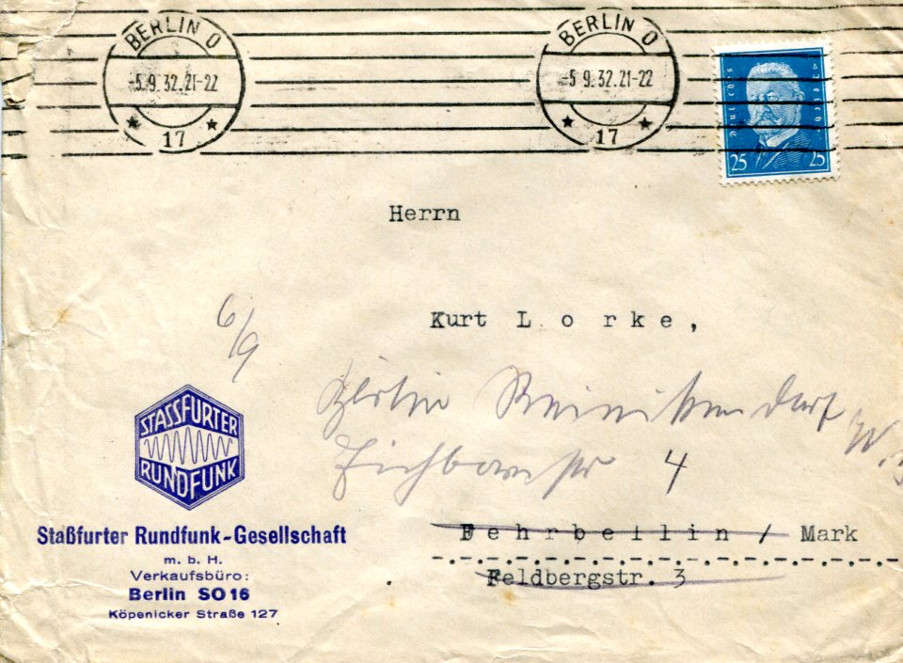 BERLIN O
-5.9.32.21-22
* 17 *
BERLIN O
-5.9.32.21-22
* 17 *
25 25
Herrn
Kurt L o r k e ,
6/9
Berlin Reinikendorf W.
4
STASSFURTER
RUNDFUNK
Staßfurter Rundfunk-Gesellschaft
m. b. H.
Verkaufsbüro:
Berlin SO 16
Köpenicker Straße 127
F e h r b e l l i n / Mark
Feldbergstr. 3